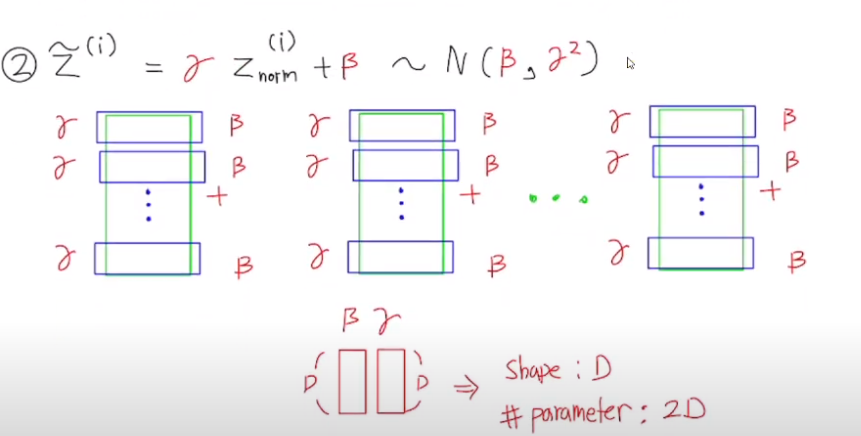 ② Z̃^(i) = γ Z_norm^(i) + β ~ N(β, γ²)
γ β γ β γ β
γ β γ β γ β
+ + ... +
γ β γ β γ β
β γ
D D ⇒ Shape : D
# parameter : 2D